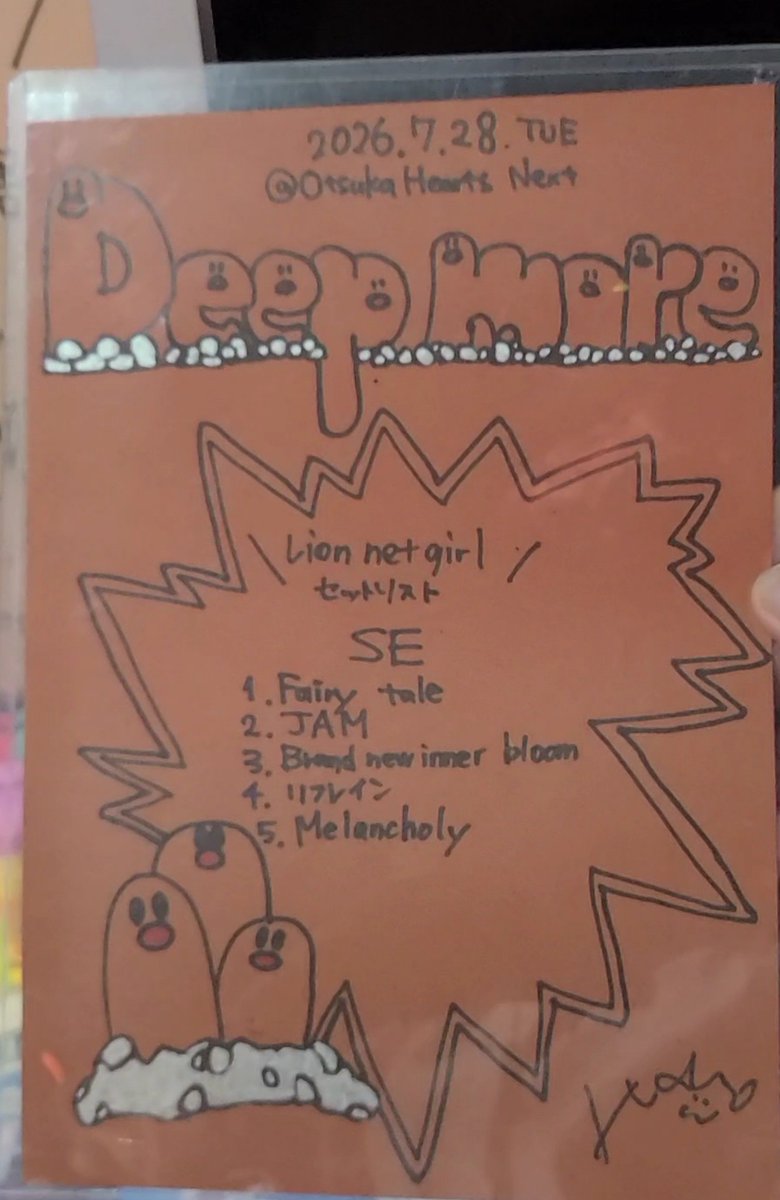 2026.7.28.TUE
@Otsuka Hearts Next
Deep more
\ Lion net girl /
セットリスト
SE
1. Fairy tale
2. JAM
3. Brand new inner bloom
4. リフレイン
5. Melancholy